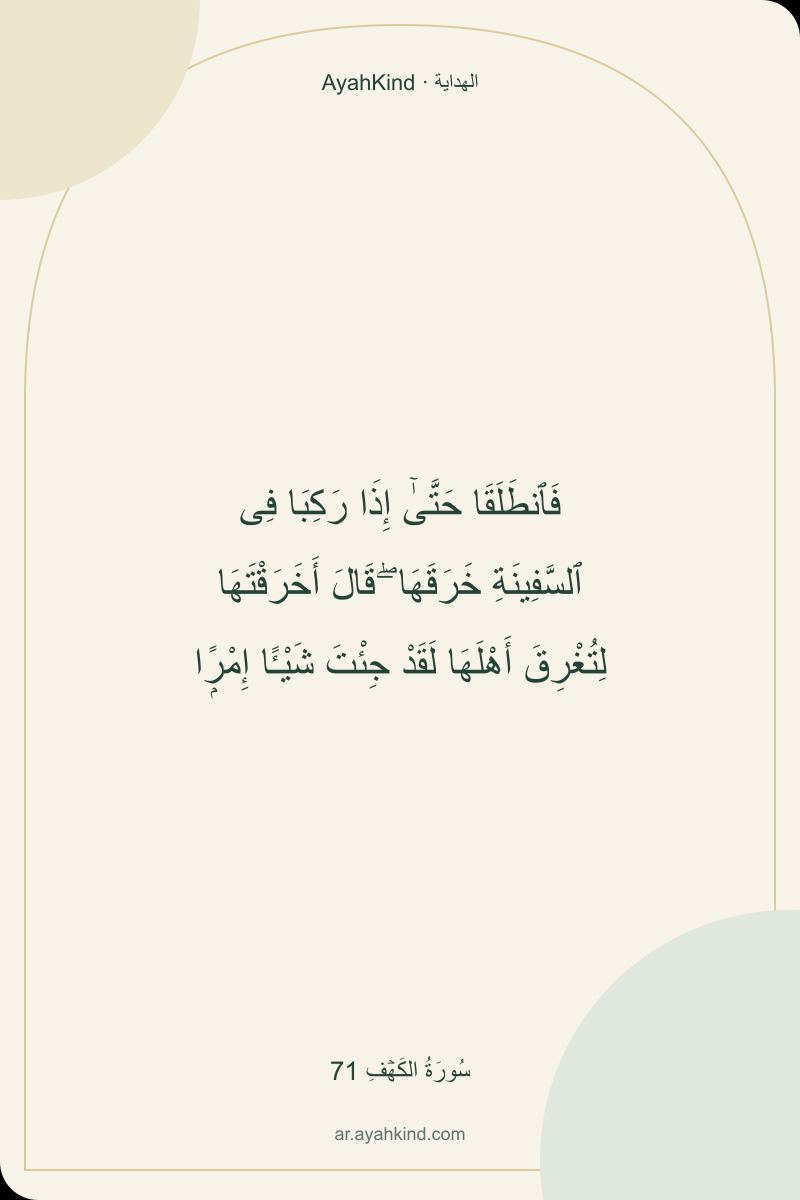 AyahKind · الهداية
فَٱنطَلَقَا حَتَّىٰٓ إِذَا رَكِبَا فِى
ٱلسَّفِينَةِ خَرَقَهَا ۖ قَالَ أَخَرَقْتَهَا
لِتُغْرِقَ أَهْلَهَا لَقَدْ جِئْتَ شَيْـًٔا إِمْرًۭا
سُورَةُ الكَهۡفِ 71
ar.ayahkind.com